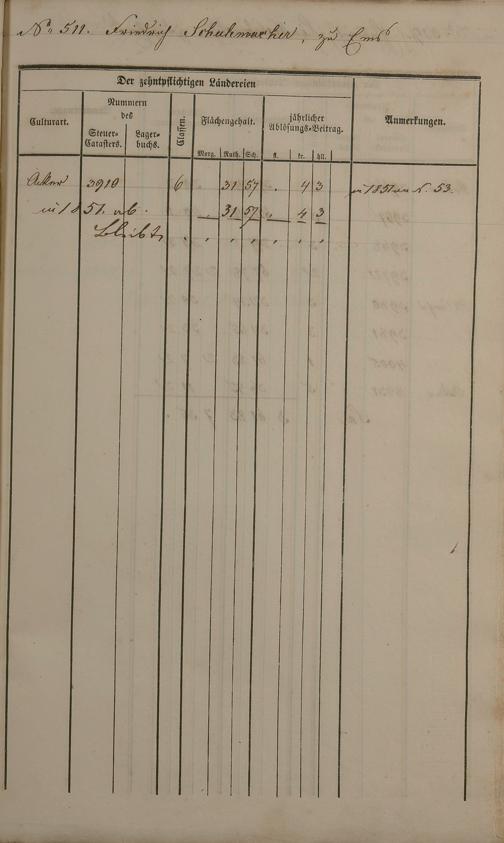 No. 511. Friedrich Schuhmacher, zu Ems
Der zehntpflichtigen Ländereien
Culturart.
Nummern des
Steuer-Catasters.
Lager-buchs.
Classen.
Flächengehalt.
Morg. Ruth. Sch.
jährlicher Ablösungs-Beitrag.
fl. kr. hll.
Anmerkungen.
Acker 3910 6 31 57 . 4 3 in 1851 an N. 53.
in 1851. ab. . 31 57 . 4 3
bleibt . . . . . .